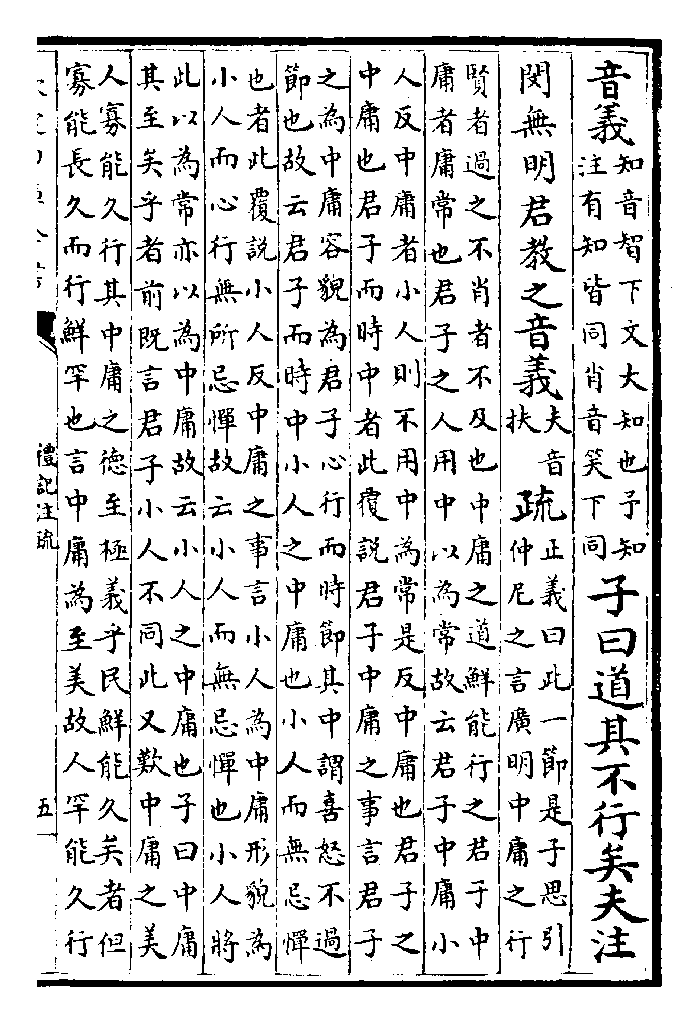 音義知音智下文大知也予知注有知皆同肖音笑下同子曰道其不行矣夫注
閔無明君教之音義夫音扶疏正義曰此一節是子思引仲尼之言廣明中庸之行
賢者過之不肖者不及也中庸之道鮮能行之君子中
庸者庸常也君子之人用中以為常故云君子中庸小
人反中庸者小人則不用中為常是反中庸也君子之
中庸也君子而時中者此覆說君子中庸之事言君子
之為中庸容貌為君子心行而時節其中謂喜怒不過
節也故云君子而時中小人之中庸也小人而無忌憚
也者此覆說小人反中庸之事言小人為中庸形貌為
小人而心行無所忌憚故云小人而無忌憚也小人將
此以為常亦以為中庸故云小人之中庸也子曰中庸
其至矣乎者前既言君子小人不同此又歎中庸之美
人寡能久行其中庸之德至極義乎民鮮能久矣者但
寡能長久而行鮮罕也言中庸為至美故人罕能久行
禮記注疏
五